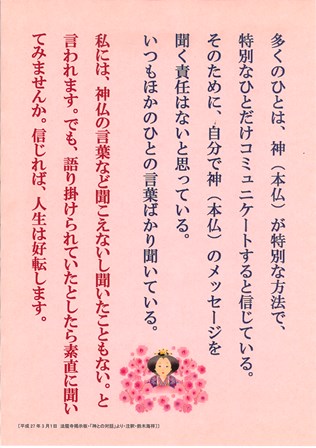 多くのひとは、神（本仏）が特別な方法で、
特別なひとだけコミュニケートすると信じている。
そのために、自分で神（本仏）のメッセージを
聞く責任はないと思っている。
いつもほかのひとの言葉ばかり聞いている。
私には、神仏の言葉など聞こえないし聞いたこともない。と
言われます。でも、語り掛けられていたとしたら素直に聞い
てみませんか。信じれば、人生は好転します。